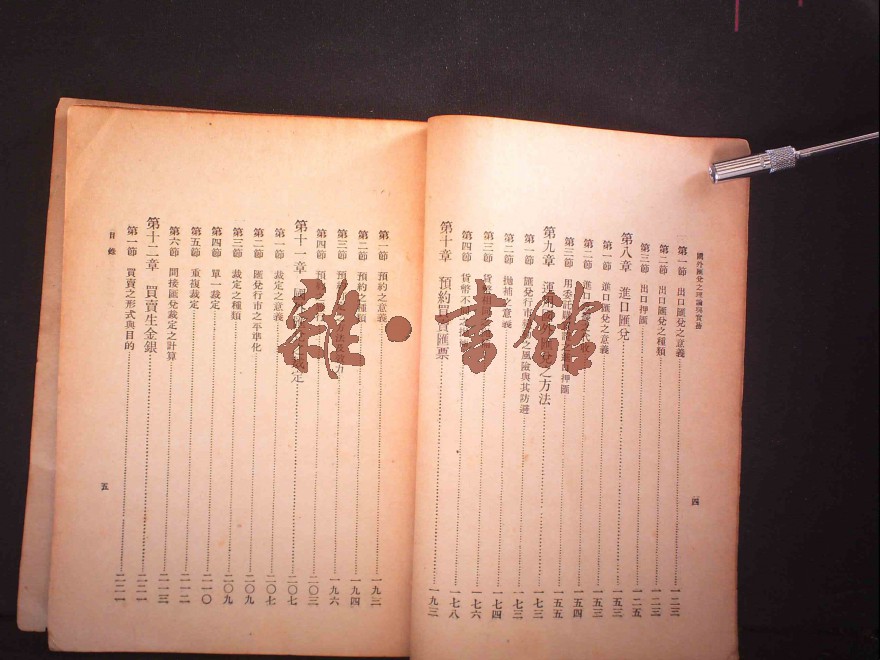 國外匯兌之理論與實務
第一節 出口匯兌之意義 一二三
第二節 出口匯兌之種類 一二三
第三節 出口押匯 一二五
第八章 進口匯兌 一五三
第一節 進口匯兌之意義 一五三
第二節 進口 一五四
第三節 用委託購 押匯 一五五
第九章 運用 兌之方法 一七三
第一節 匯兌行市 之風險與其防避 一七三
第二節 拋補之意義 一七四
第三節 貨幣相同 一七六
第四節 貨幣不 一七八
第十章 預約買賣匯票 一九三
四
第一節 預約之意義 一九三
第二節 預約之種類 一九四
第三節 預約 法 力 一九六
第四節 預 二〇三
第十一章 國 定 二〇七
第一節 裁定之意義 二〇七
第二節 匯兌行市之平準化 二〇九
第三節 裁定之種類 二〇九
第四節 單一裁定 二一〇
第五節 重複裁定 二一二
第六節 間接匯兌裁定之計算 二一三
第十二章 買賣生金銀 二二一
第一節 買賣之形式與目的 二二一
目錄
五
雜·書館